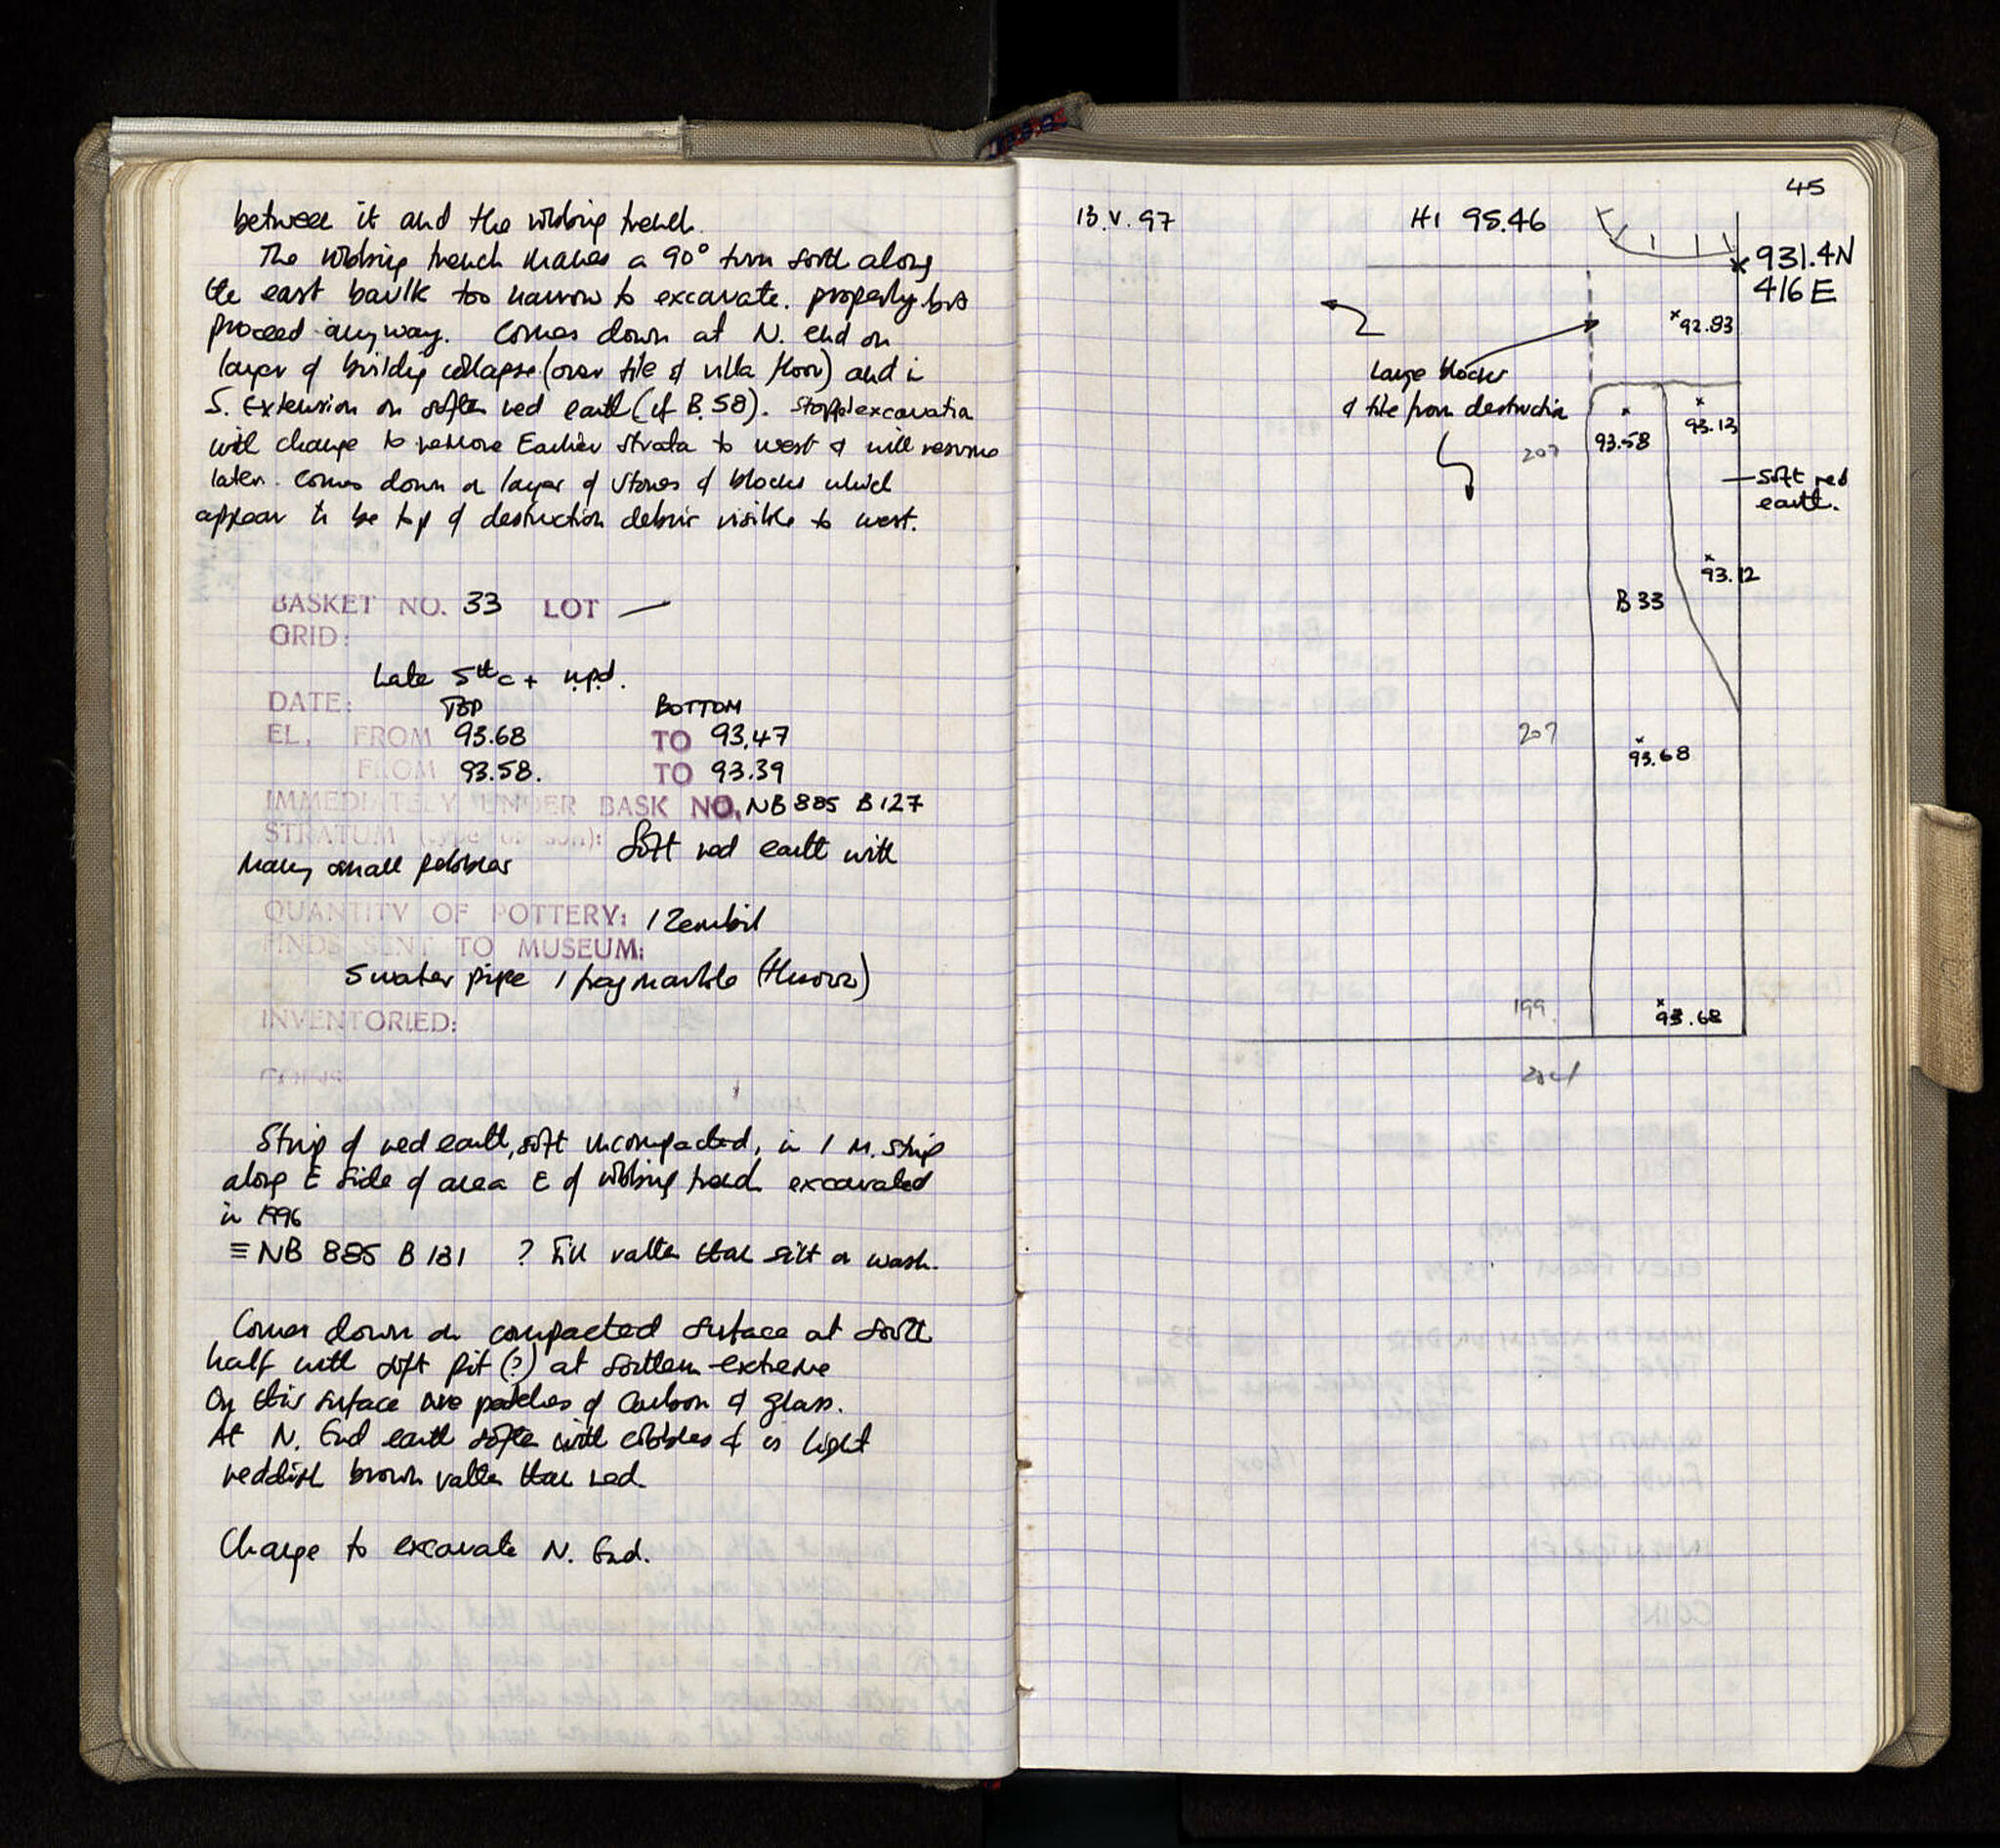 between it and the robbing trench.
The robbing trench makes a 90° turn south along
the east baulk too narrow to excavate. properly but
proceed anyway. Comes down at N. end on
layer of building collapse (over tile of villa floor) and in
S. Extension on softer red earth (cf B.58). Stopped excavation
will change to remove Earlier strata to west & will resume
later. Comes down on layer of stones & blocks which
appear to be top of destruction debris visible to west.
BASKET NO. 33 LOT —
GRID:
Late 5th c + n.p.d.
DATE: TOP BOTTOM
EL. FROM 93.68 TO 93.47
FROM 93.58. TO 93.39
IMMEDIATELY UNDER BASK NO. NB 885 B 127
STRATUM (type of soil): Soft red earth with
many small pebbles
QUANTITY OF POTTERY: 1 Zembil
FINDS SENT TO MUSEUM:
5 water pipe 1 frag marble
INVENTORIED:
COINS
Strip of red earth, soft uncompacted, in 1 M. strip
along E side of area E of robbing trench excavated
in 1996
≡ NB 885 B 131 ? Fill rather than silt or wash.
Comes down on compacted surface at south
half with soft pit (?) at southern extreme
On this surface are patches of carbon & glass.
At N. End earth softer with cobbles & is light
reddish brown rather than red.
Change to excavate N. End.
45
13.V.97 HI 95.46
931.4N
416E
92.83
Large blocks
& tile from destruction
93.58
93.13
207
Soft red
earth.
93.12
B 33
207
93.68
199
93.68
204